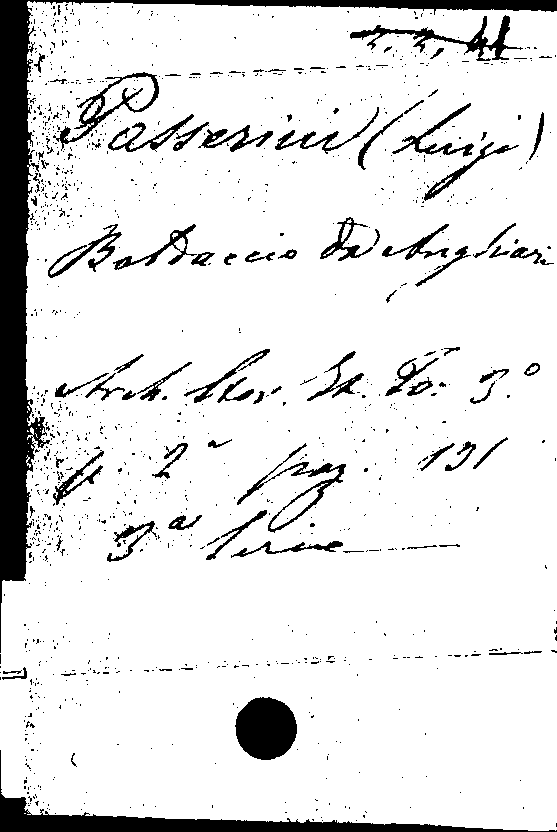 2. 2, 41
Passerini (Luigi)
Baldaccio da Anghiari
Arch. Stor. It. To: 3.º
p. 2ª pag. 131
3ª Serie